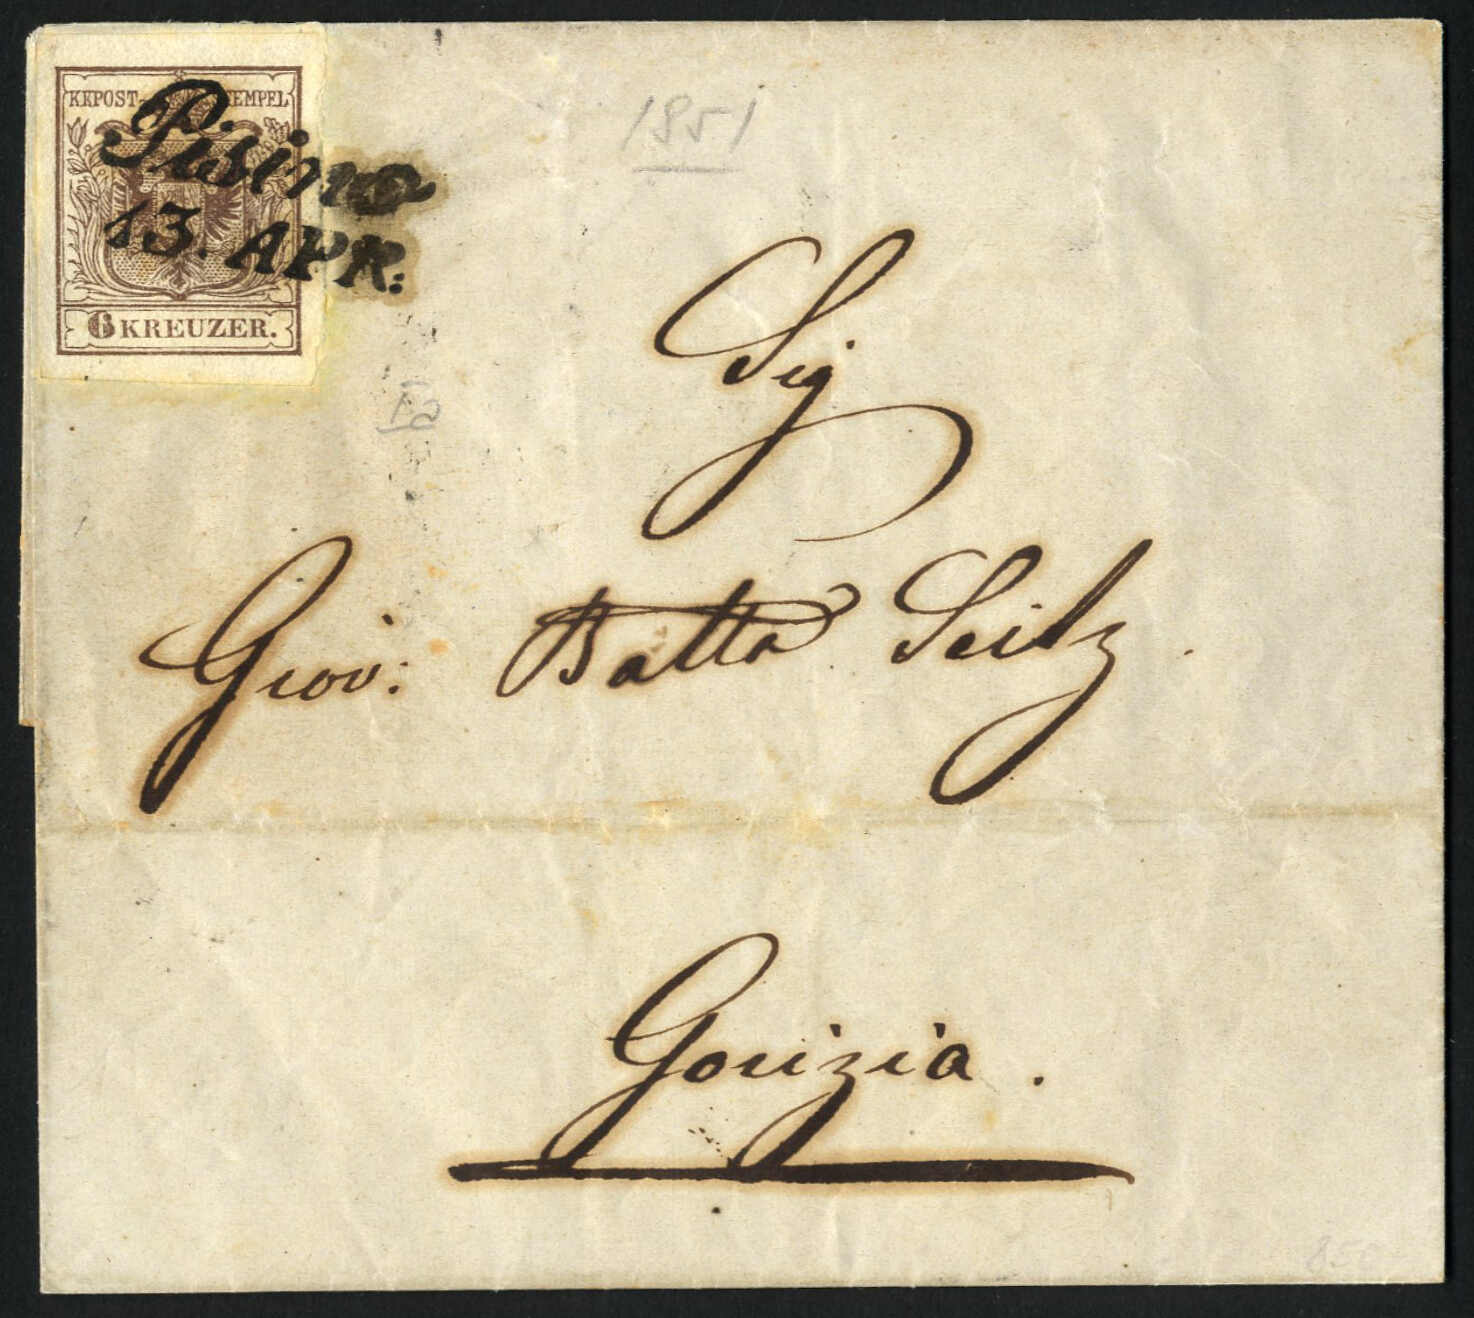 KKPOST-STEMPEL
Pisino
13. APR:
6 KREUZER.
1851
Sig
Giov: Batta Seitz.
Gorizia.
850